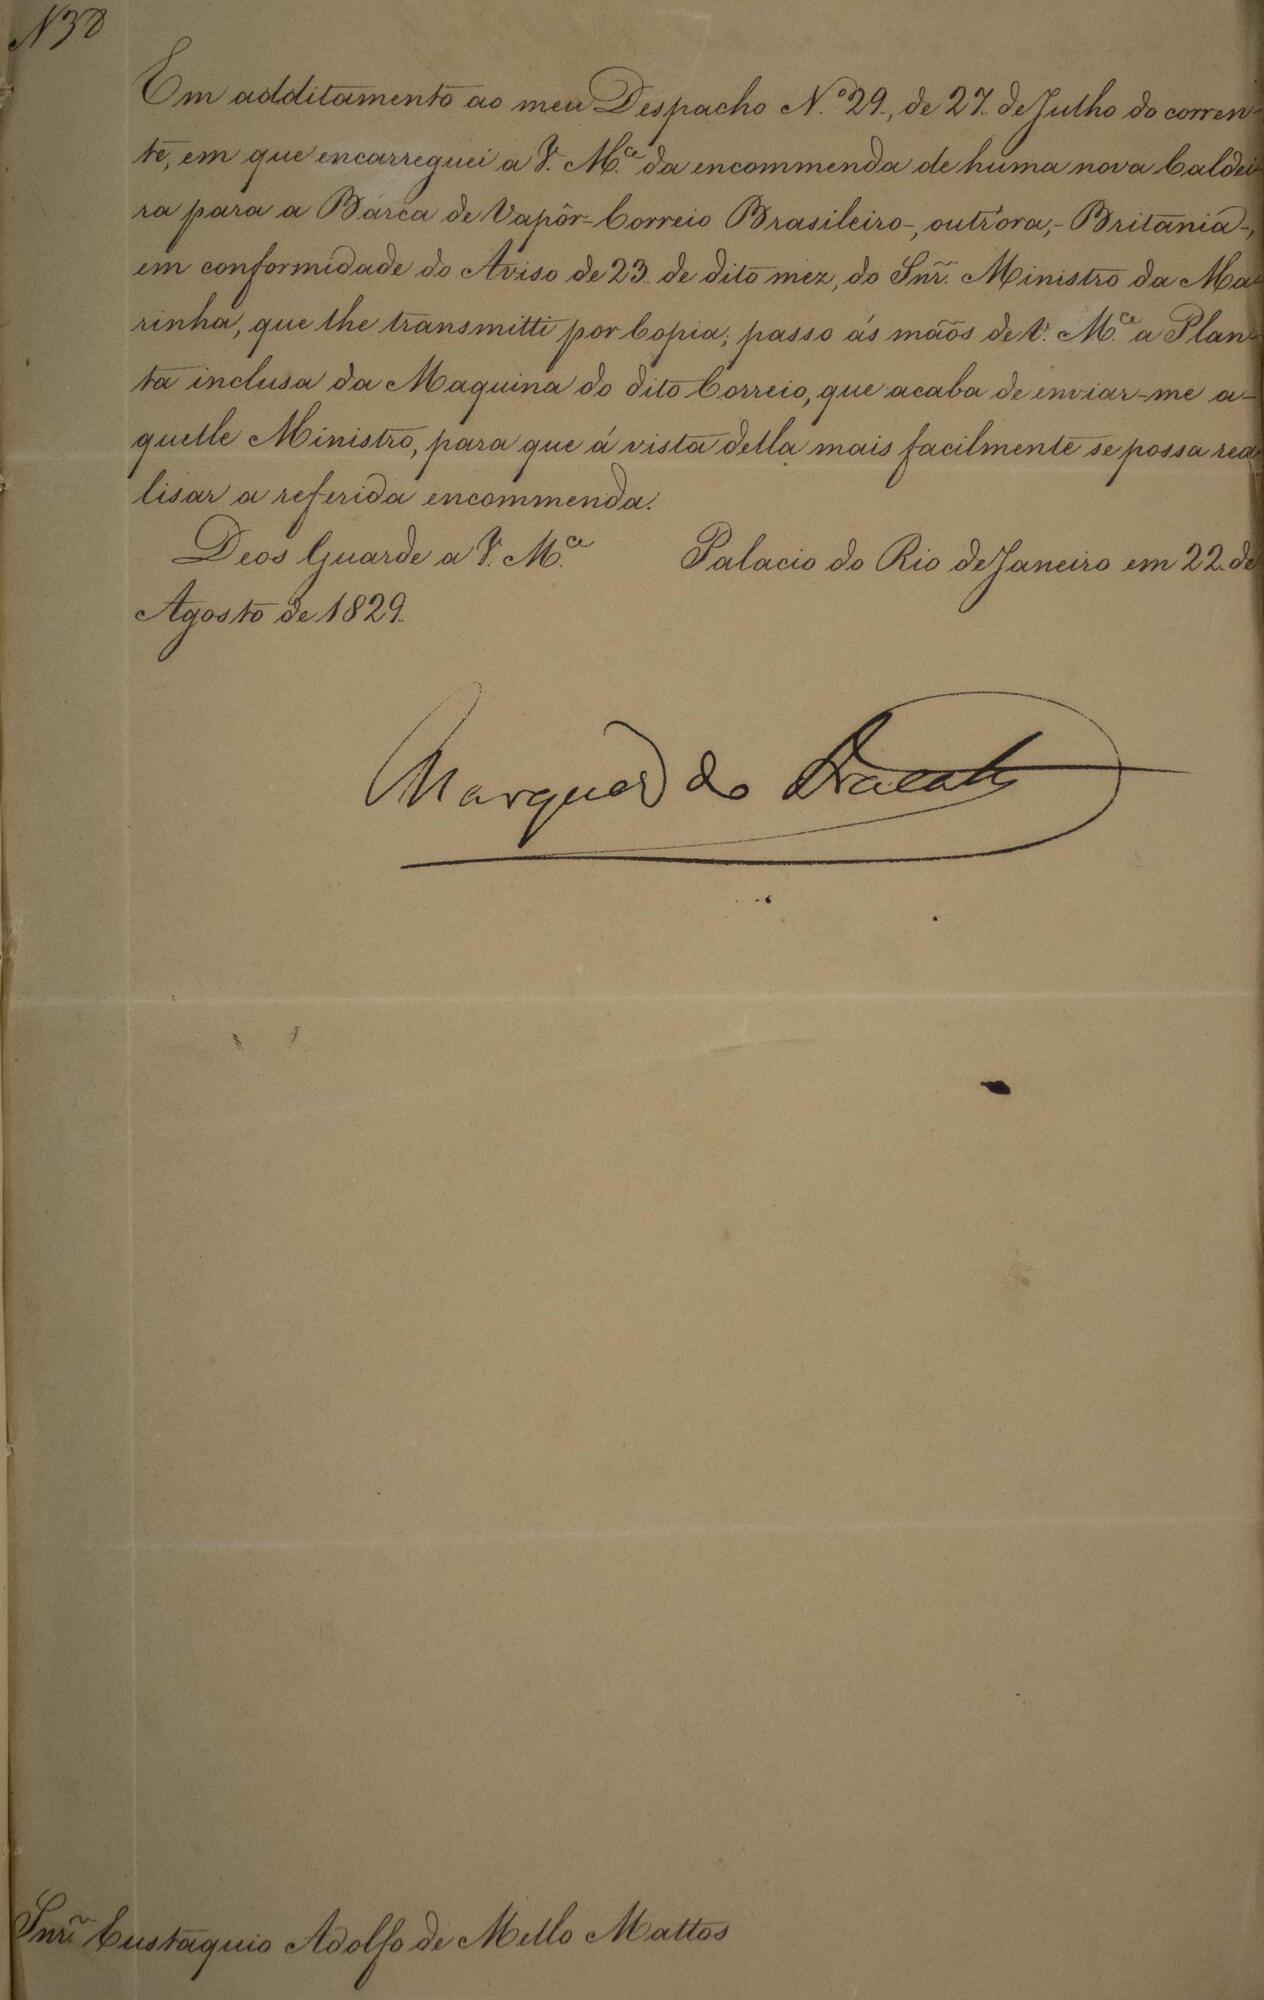 N 38
Em additamento ao meu Despacho N.º 29., de 27. de Julho do corren-
te, em que encarreguei a V. M.ce da encommenda de huma nova Caldei-
ra para a Barca de Vapôr - Correio Brasileiro -, outr'ora, - Britania -,
em conformidade do Aviso de 23. de dito mez, do Snr. Ministro da Ma-
rinha, que lhe transmitti por Copia; passo ás mãos de V. M.ce a Plan-
ta inclusa da Maquina do dito Correio, que acaba de enviar-me a-
quelle Ministro, para que á vista della mais facilmente se possa rea-
lisar a referida encommenda.
Deos Guarde a V. M.ce Palacio do Rio de Janeiro em 22. de
Agosto de 1829.
Marquez do Aracaty
Snr. Eustaquio Adolfo de Mello Mattos